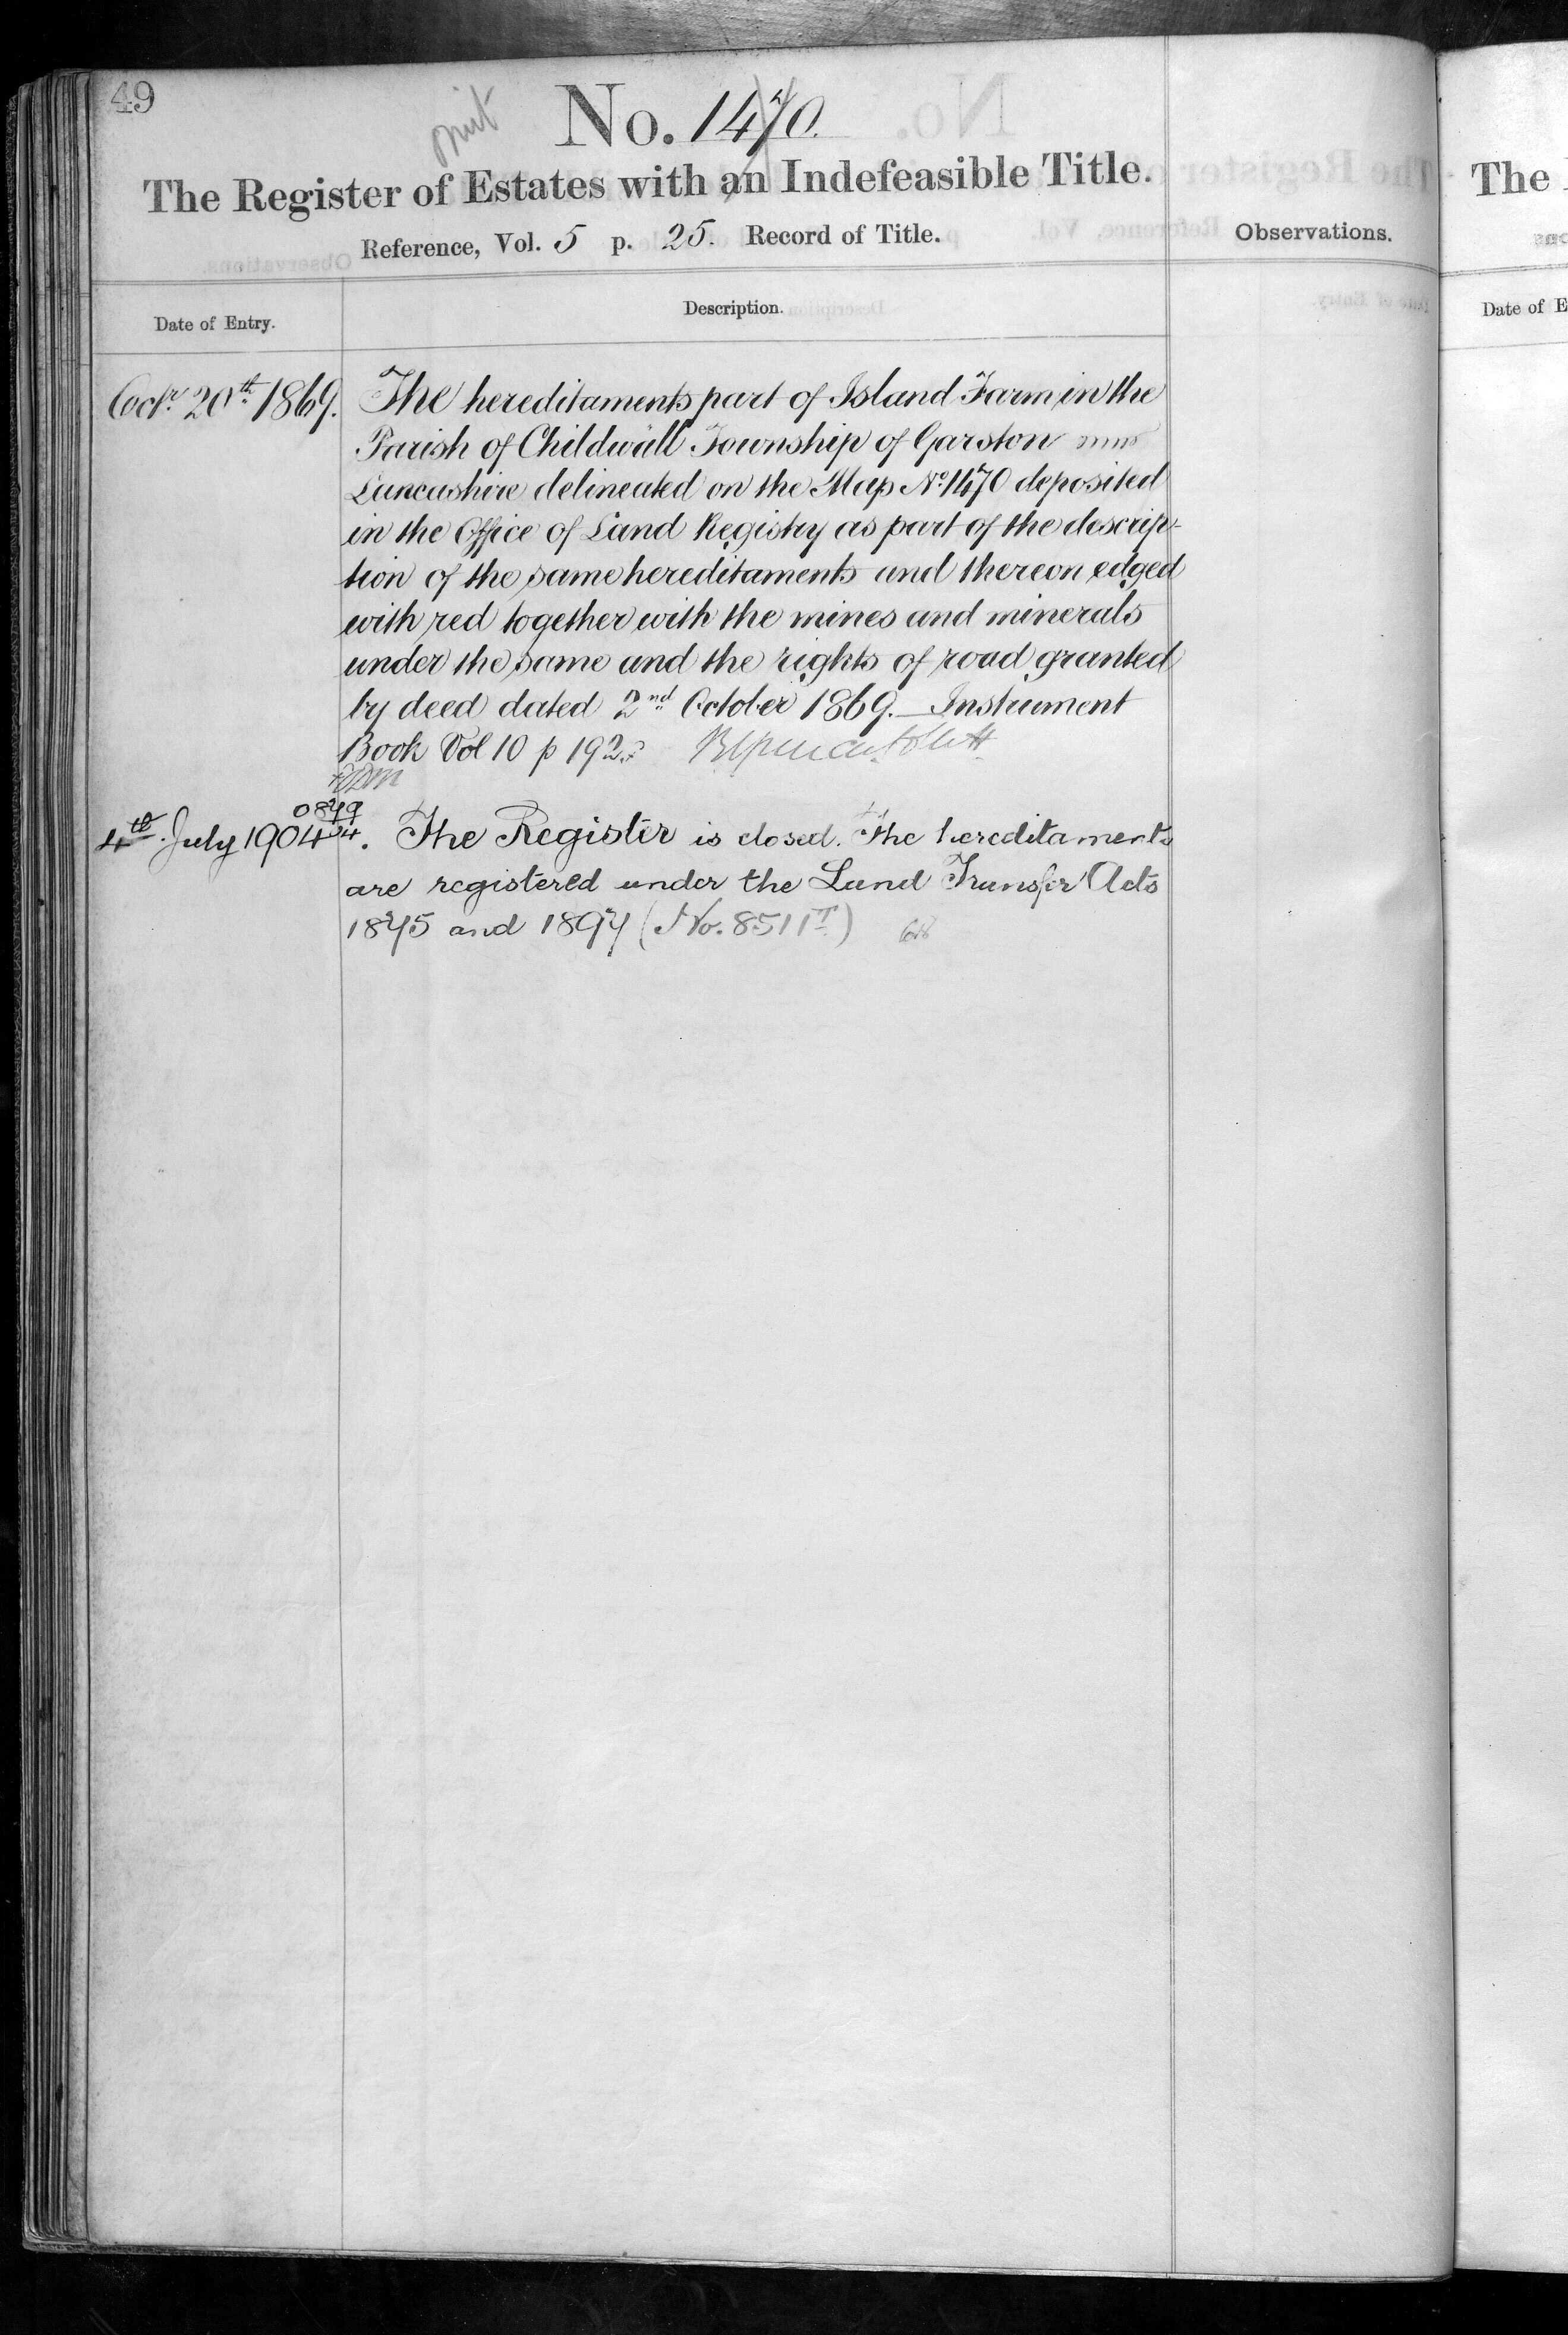 49
omit
No. 1470.
The Register of Estates with an Indefeasible Title.
Reference, Vol. 5 p. 25. Record of Title.
Observations.
Date of Entry.
Description.
Octr. 20th. 1869. The hereditaments part of Island Farm in the
Parish of Childwall Township of Garston
Lancashire delineated on the Map No. 1470 deposited
in the Office of Land Registry as part of the descrip-
tion of the same hereditaments and thereon edged
with red together with the mines and minerals
under the same and the rights of road granted
by deed dated 2nd. October 1869. — Instrument
Book Vol 10 p 192.
0879
4th. July 1904. The Register is closed. The hereditaments
are registered under the Land Transfer Acts
1875 and 1897 (No. 8511T)
The
Date of E